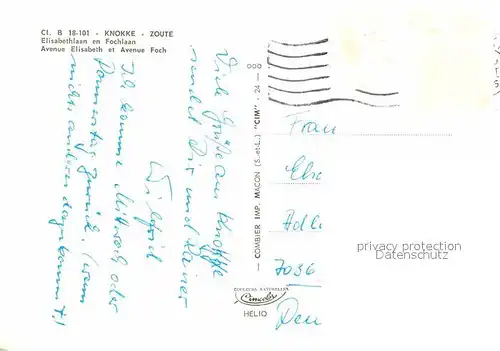 Cl. B 18-101 - KNOKKE - ZOUTE
Elisabethlaan en Fochlaan
Avenue Elisabeth et Avenue Foch
Viele Grüße aus Knokke
sendet Dir und Rainer
Wilfried
Ich komme Mittwoch oder
Donnerstag zurück. (wenn
nichts anderes dazukommt!)
COMBIER IMP. MACON (S.-et-L.) "CIM" - 24 - 000
Frau
7036
COULEURS NATURELLES
Cimcolor
HELIO
privacy protection
Datenschutz